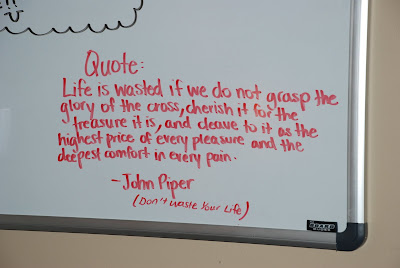 Quote:
Life is wasted if we do not grasp the
glory of the cross, cherish it for the
treasure it is, and cleave to it as the
highest price of every pleasure and the
deepest comfort in every pain.
-John Piper
(Don't Waste Your Life)